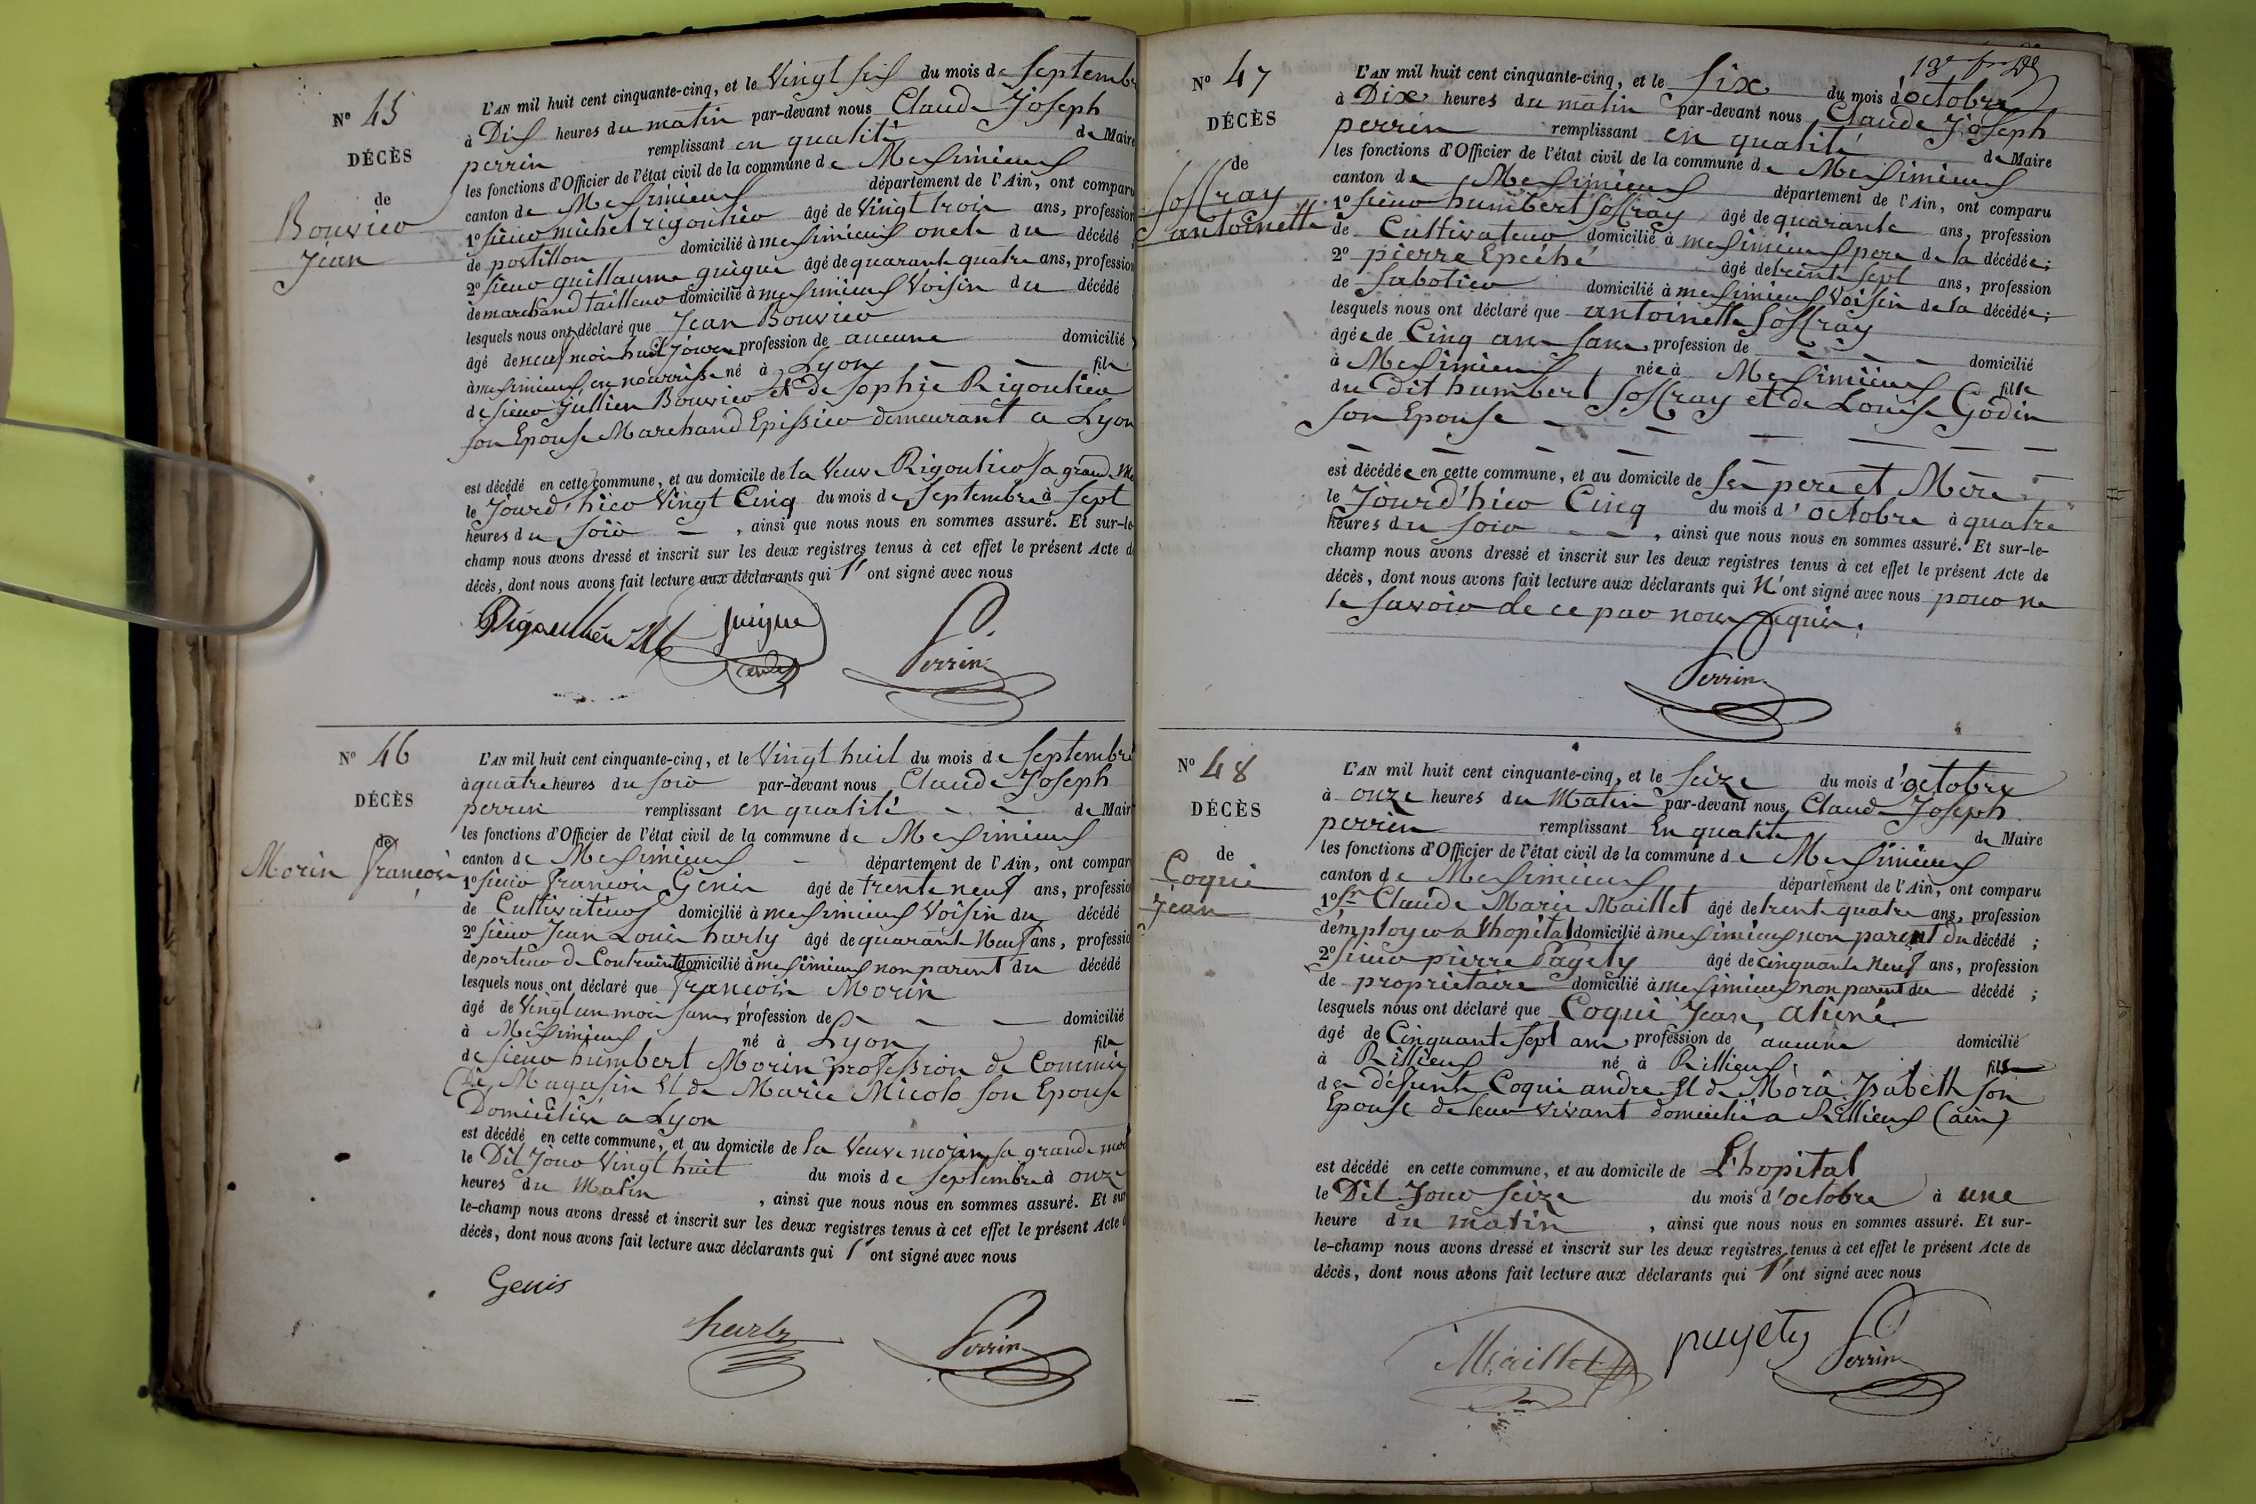 N° 45
DÉCÈS
de
Bouvier
Jean
L'AN mil huit cent cinquante-cinq, et le Vingt six du mois de Septembre
à Dix heures du matin par-devant nous Claude Joseph
perrin remplissant en qualité de Maire
les fonctions d'Officier de l'état civil de la commune de Meximieux
canton de Meximieux département de l'Ain, ont comparu
1° sieur michel rigoulier âgé de Vingt trois ans, profession
de postillon domicilié à meximieux oncle du décédé
2° sieur guillaume guigue âgé de quarante quatre ans, profession
de marchand tailleur domicilié à meximieux Voisin du décédé
lesquels nous ont déclaré que Jean Bouvier
âgé de neuf mois huit jours profession de aucune domicilié
à meximieux en nourrisse né à Lyon fils
de sieur jullien Bouvier et de Sophie Rigoulier
son Epouse Marchand Epissier demeurant a Lyon
est décédé en cette commune, et au domicile de la Veuve Rigoulier sa grand
le Jourd'hier Vingt Cinq du mois de Septembre à Sept
heures du soir, ainsi que nous nous en sommes assuré. Et sur-le-
champ nous avons dressé et inscrit sur les deux registres tenus à cet effet le présent Acte de
décès, dont nous avons fait lecture aux déclarants qui l'ont signé avec nous
guigue
Perrin
N° 46
DÉCÈS
de
Morin françois
L'AN mil huit cent cinquante-cinq, et le Vingt huit du mois de Septembre
à quatre heures du soir par-devant nous Claude Joseph
perrin remplissant en qualité de Maire
les fonctions d'Officier de l'état civil de la commune de Meximieux
canton de Meximieux département de l'Ain, ont comparu
1° sieur françois Genis âgé de trente neuf ans, profession
de Cultivateur domicilié à meximieux Voisin du décédé
2° sieur Jean Louis harly âgé de quarante Neuf ans, profession
de porteur de Contrainte domicilié à meximieux non parent du décédé
lesquels nous ont déclaré que françois Morin
âgé de Vingt un mois sans profession de domicilié
à Meximieux né à Lyon fils
de sieur humbert Morin profession de Commis
De Magasin Et de Marie Micolo son Epouse
Domiciliés a Lyon
est décédé en cette commune, et au domicile de la Veuve morin sa grande
le Dit Jour Vingt huit du mois de Septembre à onze
heures du Matin, ainsi que nous nous en sommes assuré. Et sur-
le-champ nous avons dressé et inscrit sur les deux registres tenus à cet effet le présent Acte
décès, dont nous avons fait lecture aux déclarants qui l'ont signé avec nous
Genis
harly
Perrin
N° 47
DÉCÈS
de
Soffray
antoinette
L'AN mil huit cent cinquante-cinq, et le Six du mois d'octobre
à Dix heures du matin par-devant nous Claude Joseph
perrin remplissant en qualité de Maire
les fonctions d'Officier de l'état civil de la commune de Meximieux
canton de Meximieux département de l'Ain, ont comparu
1° sieur humbert Soffray âgé de quarante ans, profession
de Cultivateur domicilié à meximieux pere de la décédée;
2° pierre Epeché âgé de trente sept ans, profession
de Sabotier domicilié à meximieux Voisin de la décédée;
lesquels nous ont déclaré que antoinette Soffray
âgée de Cinq ans sans profession de domicilié
à Meximieux née à Meximieux fille
du dit humbert Soffray et de Louise Godin
son Epouse
est décédée en cette commune, et au domicile de Ses pere et Mère
le Jourd'hier Cinq du mois d'octobre à quatre
heures du soir, ainsi que nous nous en sommes assuré. Et sur-le-
champ nous avons dressé et inscrit sur les deux registres tenus à cet effet le présent Acte de
décès, dont nous avons fait lecture aux déclarants qui N'ont signé avec nous pour ne
le savoir de ce par nous requis.
Perrin
N° 48
DÉCÈS
de
Coqui
Jean
L'AN mil huit cent cinquante-cinq, et le Seize du mois d'octobre
à onze heures du Matin par-devant nous Claude Joseph
perrin remplissant En qualité de Maire
les fonctions d'Officier de l'état civil de la commune de Meximieux
canton de Meximieux département de l'Ain, ont comparu
1° Sr Claude Marie Maillet âgé de trente quatre ans, profession
d'employer a l'hopital domicilié à meximieux non parent du décédé;
2° sieur pierre Pugety âgé de cinquante Neuf ans, profession
de proprietaire domicilié à meximieux non parent du décédé;
lesquels nous ont déclaré que Coqui Jean, aliéné
âgé de Cinquante Sept ans profession de aucune domicilié
à Rillieux né à Rillieux fils
des défunts Coqui andré Et de Mora Isabelle son
Epouse de leur vivant domicilié a Rillieux (ain)
est décédé en cette commune, et au domicile de L'hopital
le Dit Jour Seize du mois d'octobre à une
heure du matin, ainsi que nous nous en sommes assuré. Et sur-
le-champ nous avons dressé et inscrit sur les deux registres tenus à cet effet le présent Acte de
décès, dont nous avons fait lecture aux déclarants qui l'ont signé avec nous
Maillet
pugety
Perrin